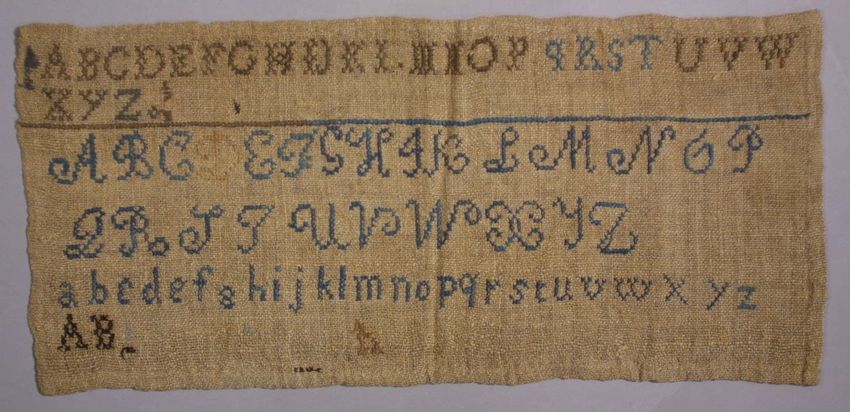 ABCDEFGHIJKL.MNOP qRSTUVW
XYZ.
ABCDEFGHIKLMNOP
QRSTUVWXYZ
abcdefghijklmnopqrstuvwxyz
AB